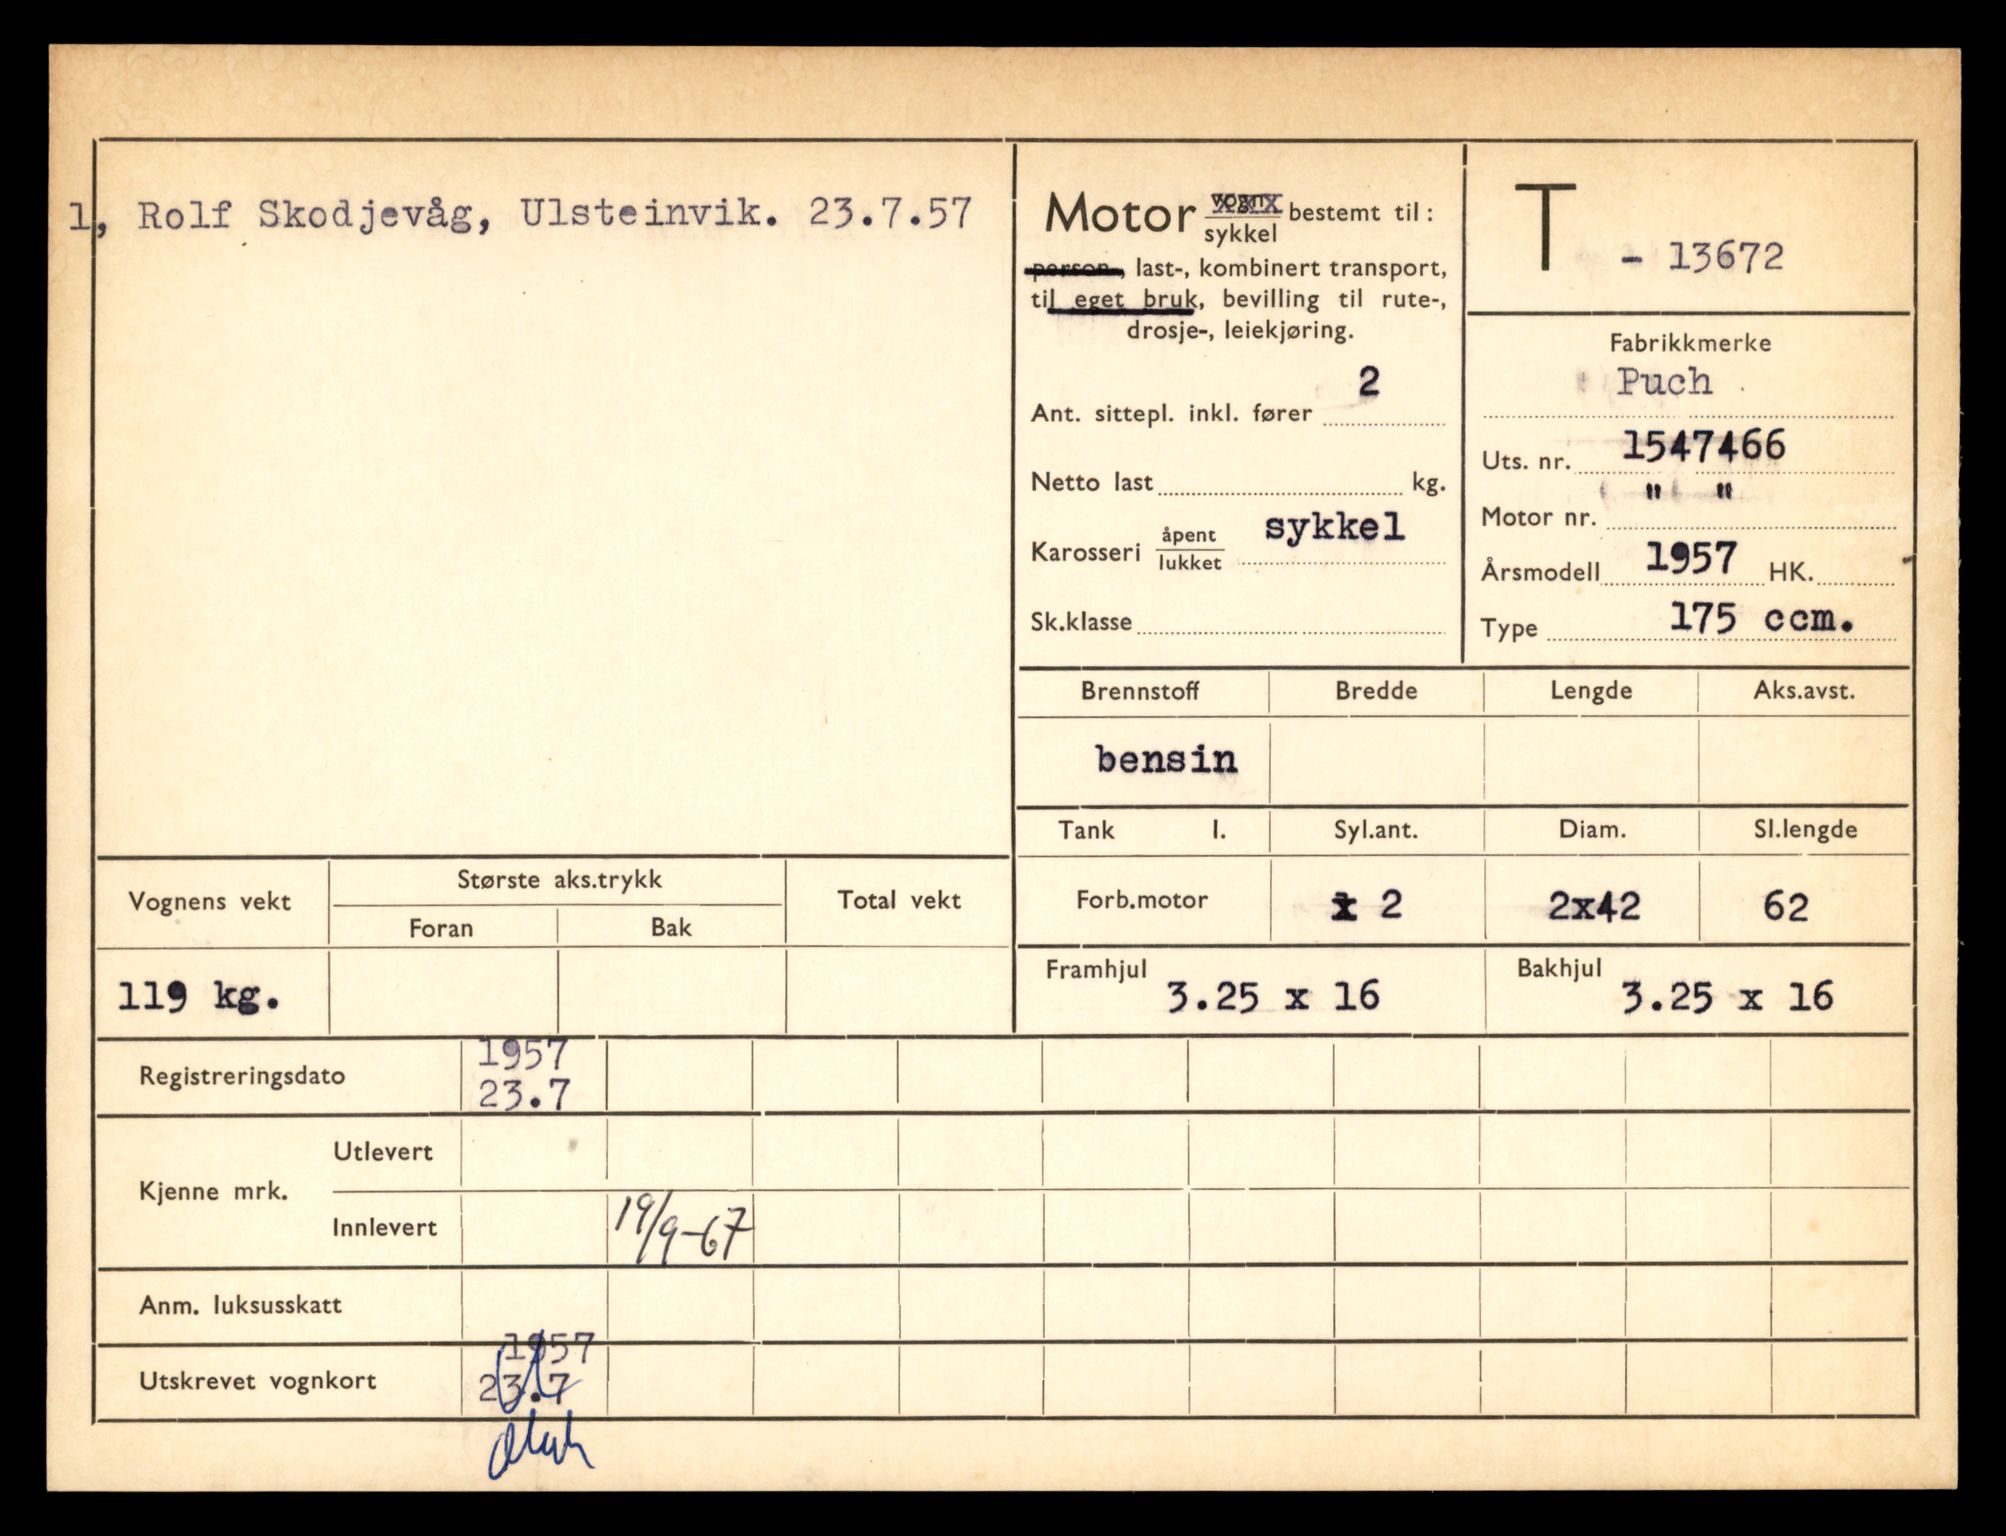 1, Rolf Skodjevåg, Ulsteinvik. 23.7.57
Motor vogn/sykkel bestemt til:
person-, last-, kombinert transport,
til eget bruk, bevilling til rute-,
drosje-, leiekjøring.
Ant. sittepl. inkl. fører 2
Netto last kg.
Karosseri åpent/lukket sykkel
Sk.klasse
T - 13672
Fabrikkmerke
Puch
Uts. nr. 1547466
Motor nr. " "
Årsmodell 1957 HK.
Type 175 ccm.
Brennstoff Bredde Lengde Aks.avst.
bensin
Tank l. Syl.ant. Diam. Sl.lengde
Forb.motor 2 2x42 62
Framhjul 3.25 x 16 Bakhjul 3.25 x 16
Vognens vekt Største aks.trykk Total vekt
Foran Bak
119 kg.
Registreringsdato 1957
23.7
Kjenne mrk. Utlevert
Innlevert 19/9-67
Anm. luksusskatt
Utskrevet vognkort 1957
23.7